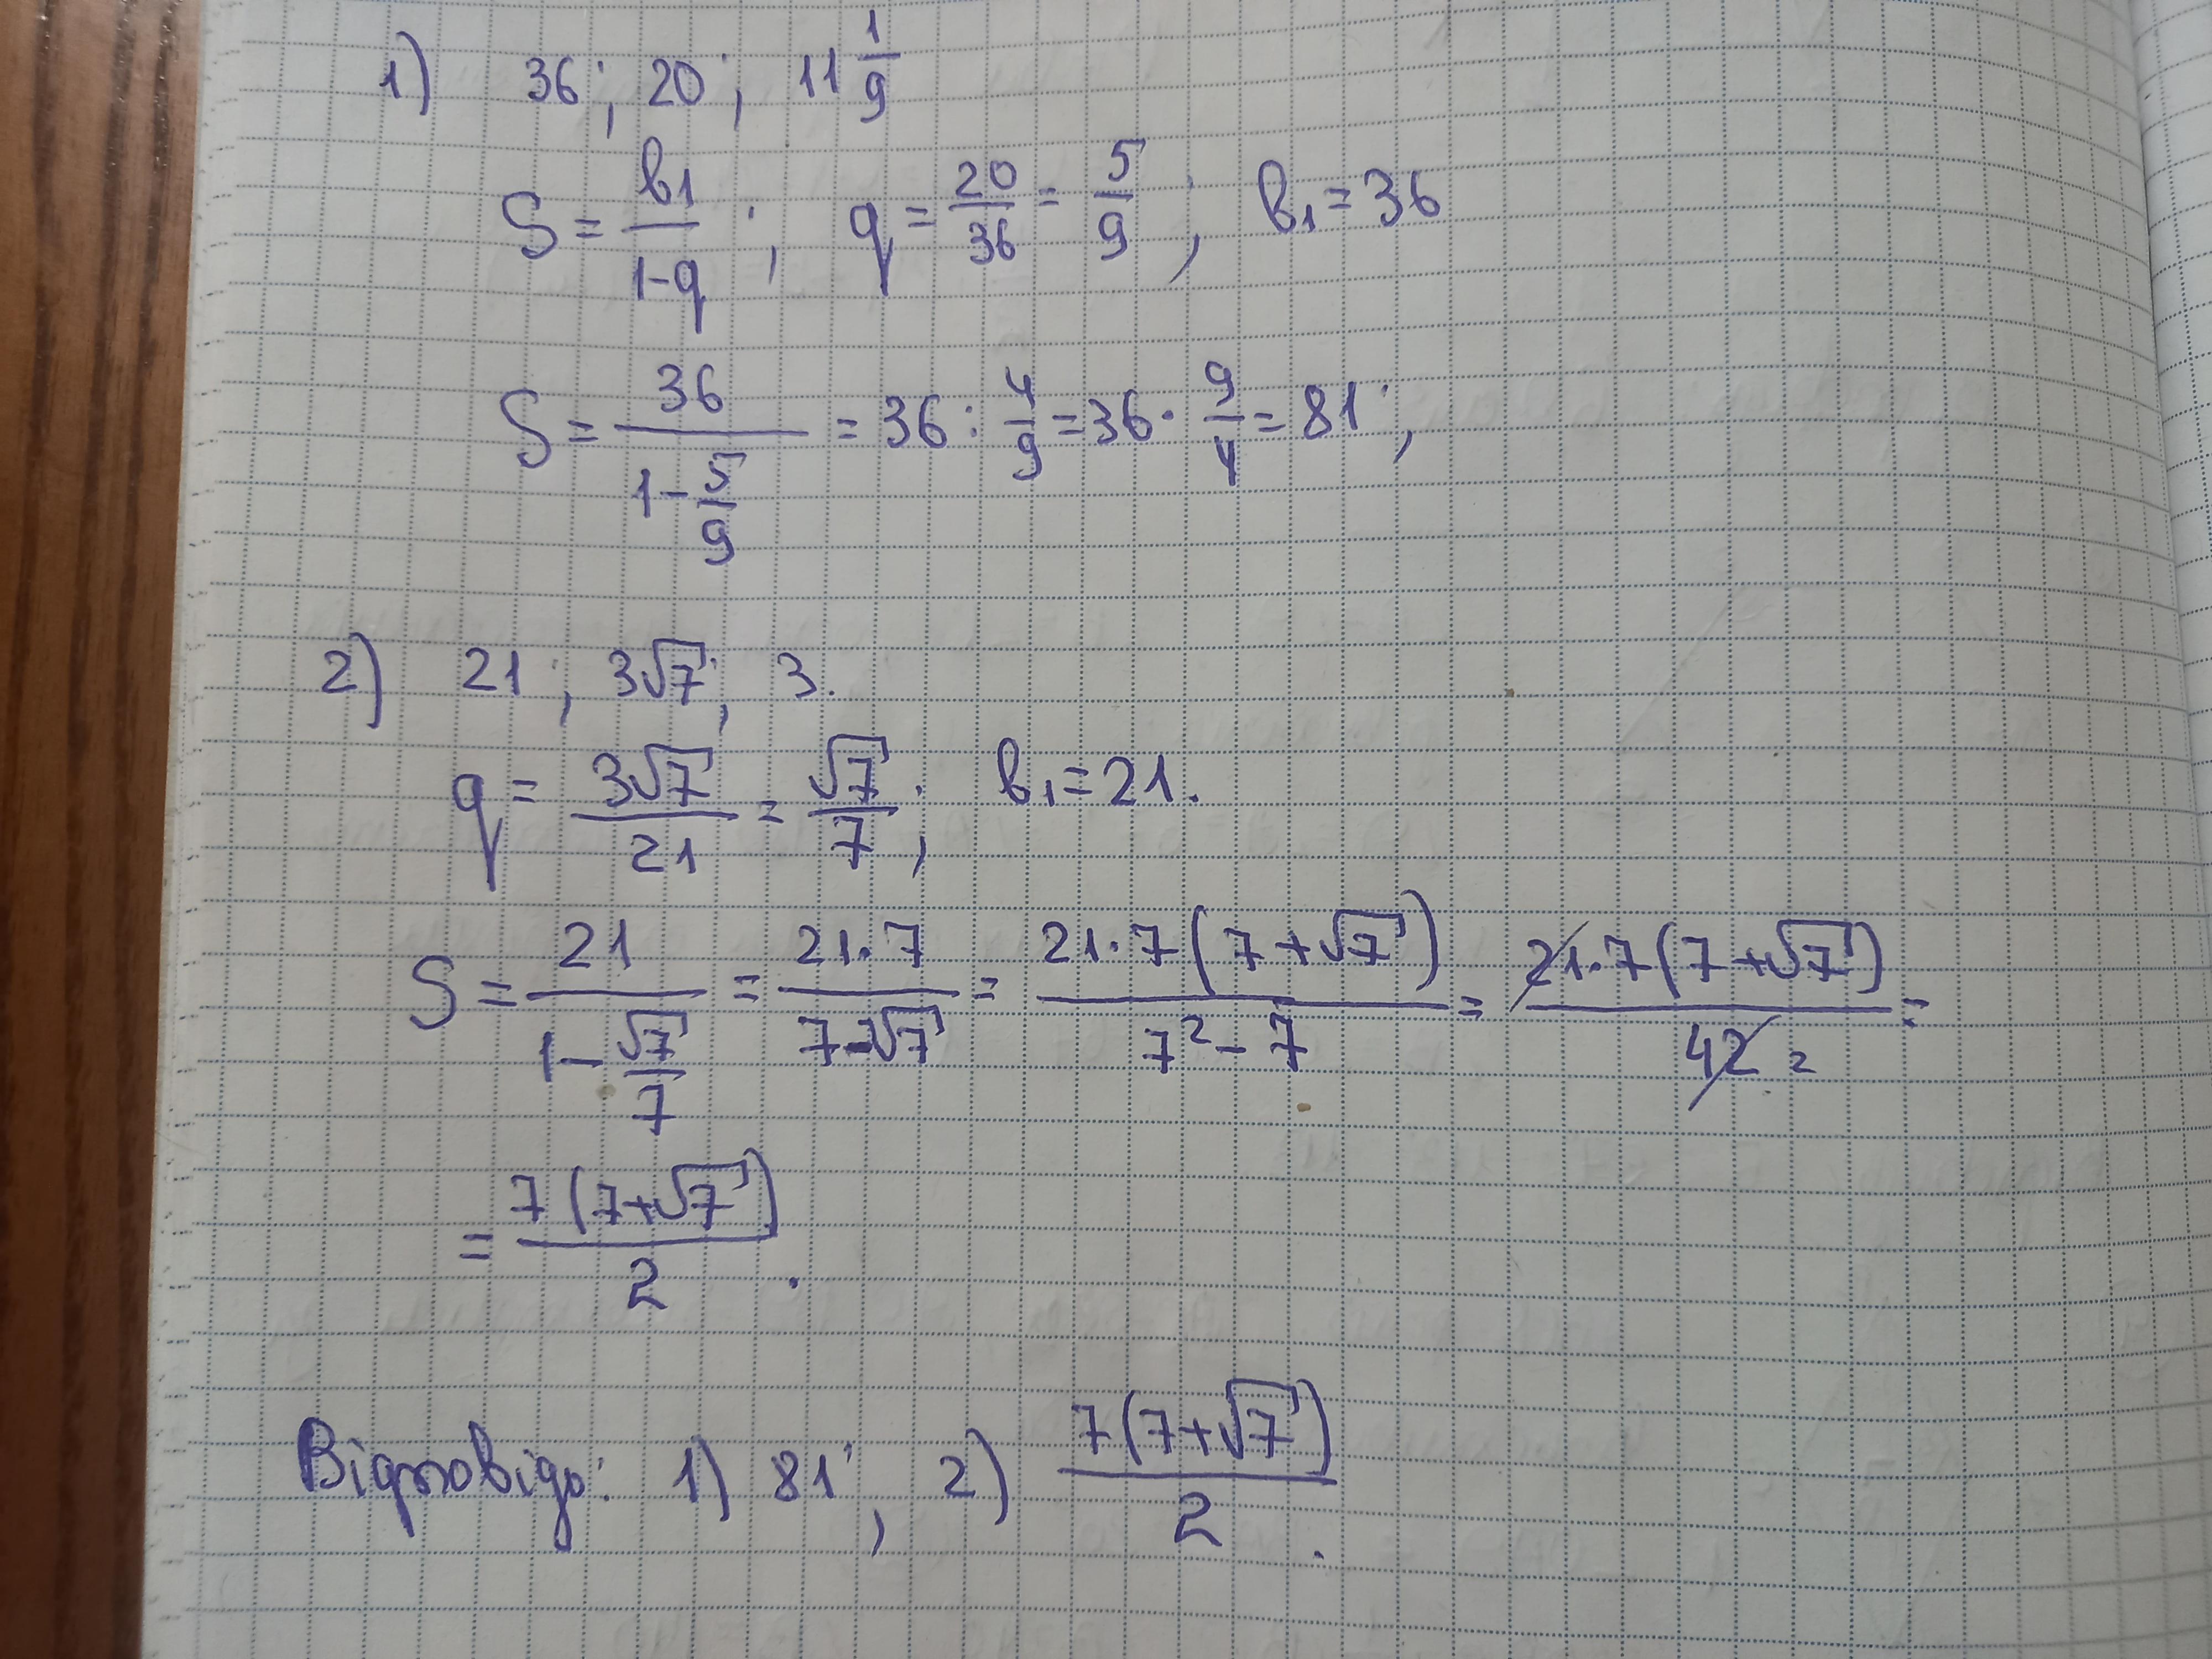 1) 36; 20; 11 1/9
S = b₁/(1-q); q = 20/36 = 5/9; b₁ = 36
S = 36/(1 - 5/9) = 36 : 4/9 = 36 · 9/4 = 81;
2) 21; 3√7; 3.
q = 3√7/21 = √7/7; b₁ = 21.
S = 21/(1 - √7/7) = 21·7/(7-√7) = 21·7(7+√7)/(7² - 7) = 21·7(7+√7)/42 2 =
= 7(7+√7)/2.
Відповідь: 1) 81; 2) 7(7+√7)/2.